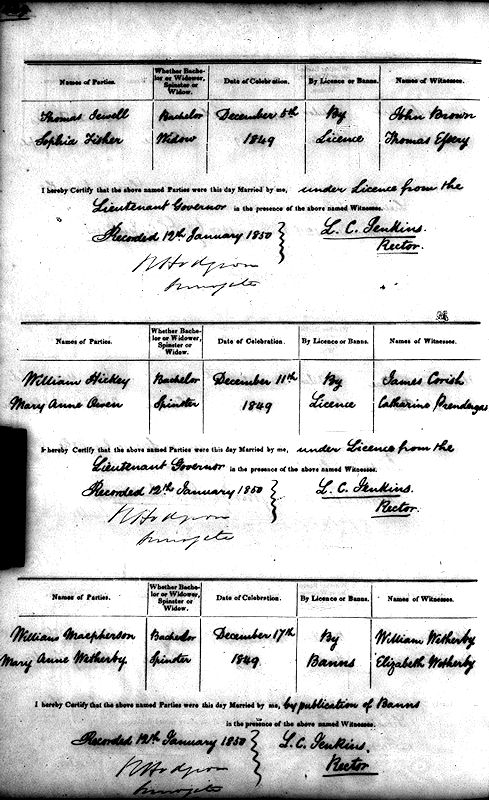 Names of Parties. Whether Bachelor or Widower, Spinster or Widow. Date of Celebration. By Licence or Banns. Names of Witnesses.
Thomas Sewell Bachelor December 5th By John Brown
Sophia Fisher Widow 1849 Licence Thomas Essery
I hereby Certify that the above named Parties were this day Married by me, under Licence from the
Lieutenant Governor in the presence of the above named Witnesses.
Recorded 12th January 1850 L. C. Jenkins.
Rector.
Surrogate
Names of Parties. Whether Bachelor or Widower, Spinster or Widow. Date of Celebration. By Licence or Banns. Names of Witnesses.
William Hickey Bachelor December 11th By James Corish
Mary Anne Owen Spinster 1849 Licence Catharine Prendergas
I hereby Certify that the above named Parties were this day Married by me, under Licence from the
Lieutenant Governor in the presence of the above named Witnesses.
Recorded 12th January 1850 L. C. Jenkins.
R Hodgson Rector.
Surrogate
Names of Parties. Whether Bachelor or Widower, Spinster or Widow. Date of Celebration. By Licence or Banns. Names of Witnesses.
William Macpherson Bachelor December 17th By William Wetherby
Mary Anne Wetherby Spinster 1849 Banns Elizabeth Wetherby
I hereby Certify that the above named Parties were this day Married by me, by publication of Banns
in the presence of the above named Witnesses.
Recorded 12th January 1850 L. C. Jenkins.
R Hodgson Rector
Surrogate